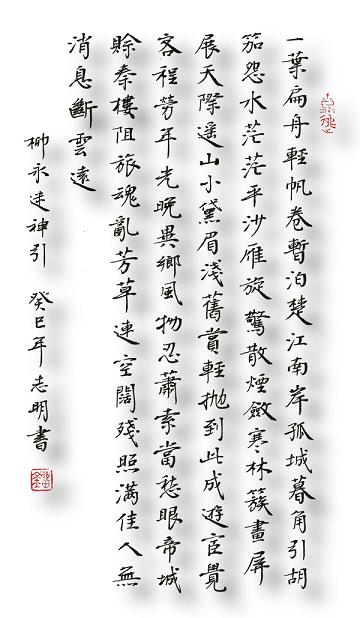 一葉扁舟輕帆卷暫泊楚江南岸孤城暮角引胡
笳怨水茫茫平沙雁旋驚散煙斂寒林簇畫屏
展天際遙山小黛眉淺舊賞輕拋到此成遊宦覺
客程勞年光晚異鄉風物忍蕭索當愁眼帝城
賒秦樓阻旅魂亂芳草連空闊殘照滿佳人無
消息斷雲遠
柳永迷神引 癸巳年志明書